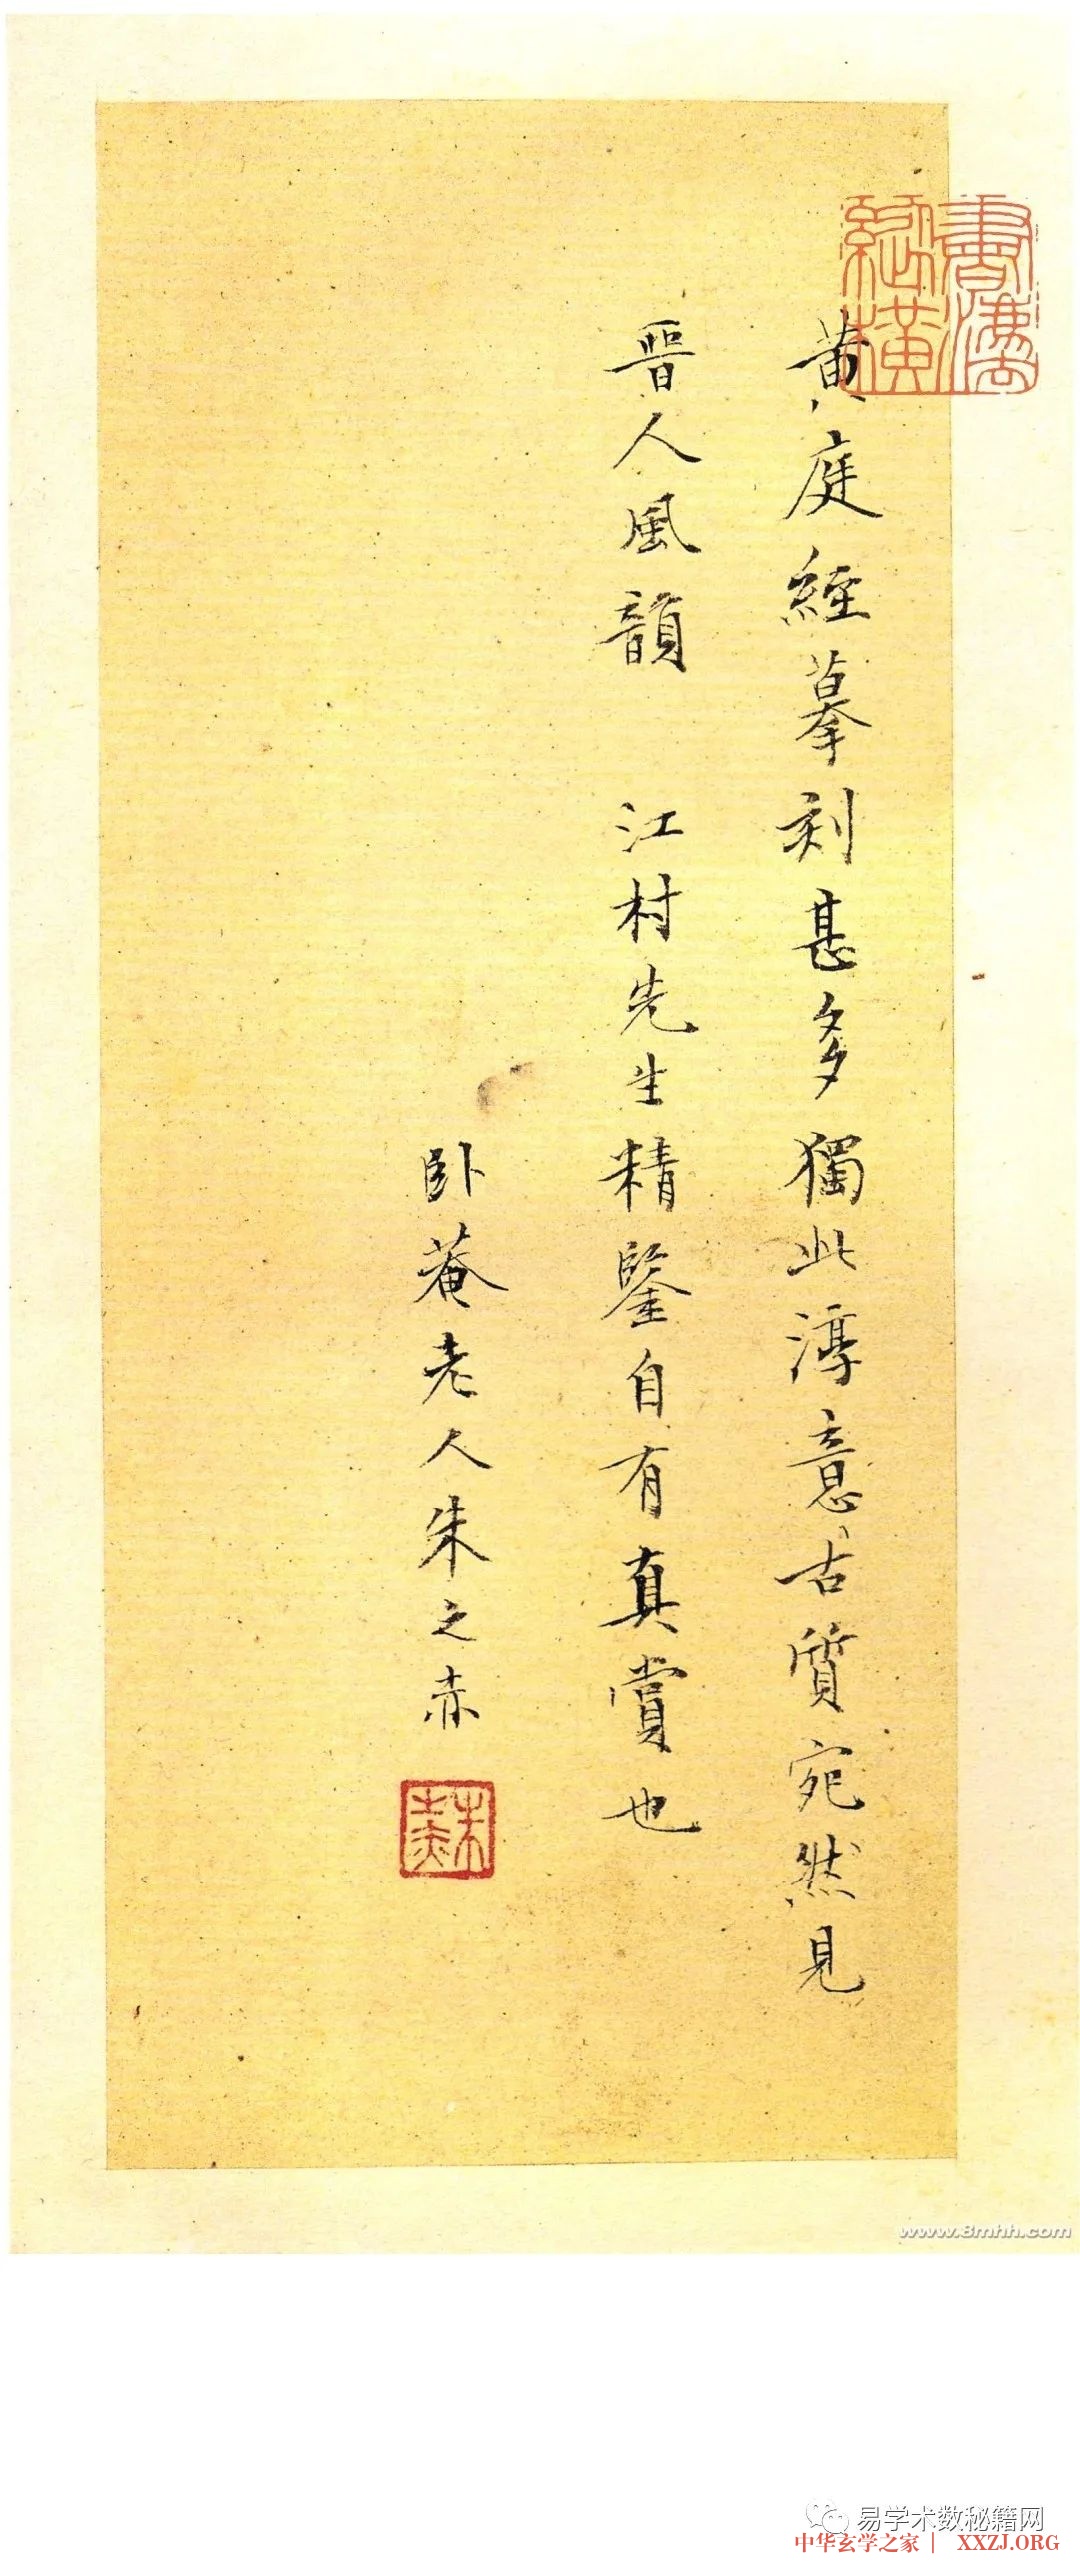 黄庭經摹刻甚多獨此淳意古質宛然見
晋人風韻 江村先生精鑒自有真賞也
卧菴老人朱之赤
書法
縱橫
朱之赤
www.8mhh.com
易学术数秘籍网
中华玄学之家| XXZJ.ORG